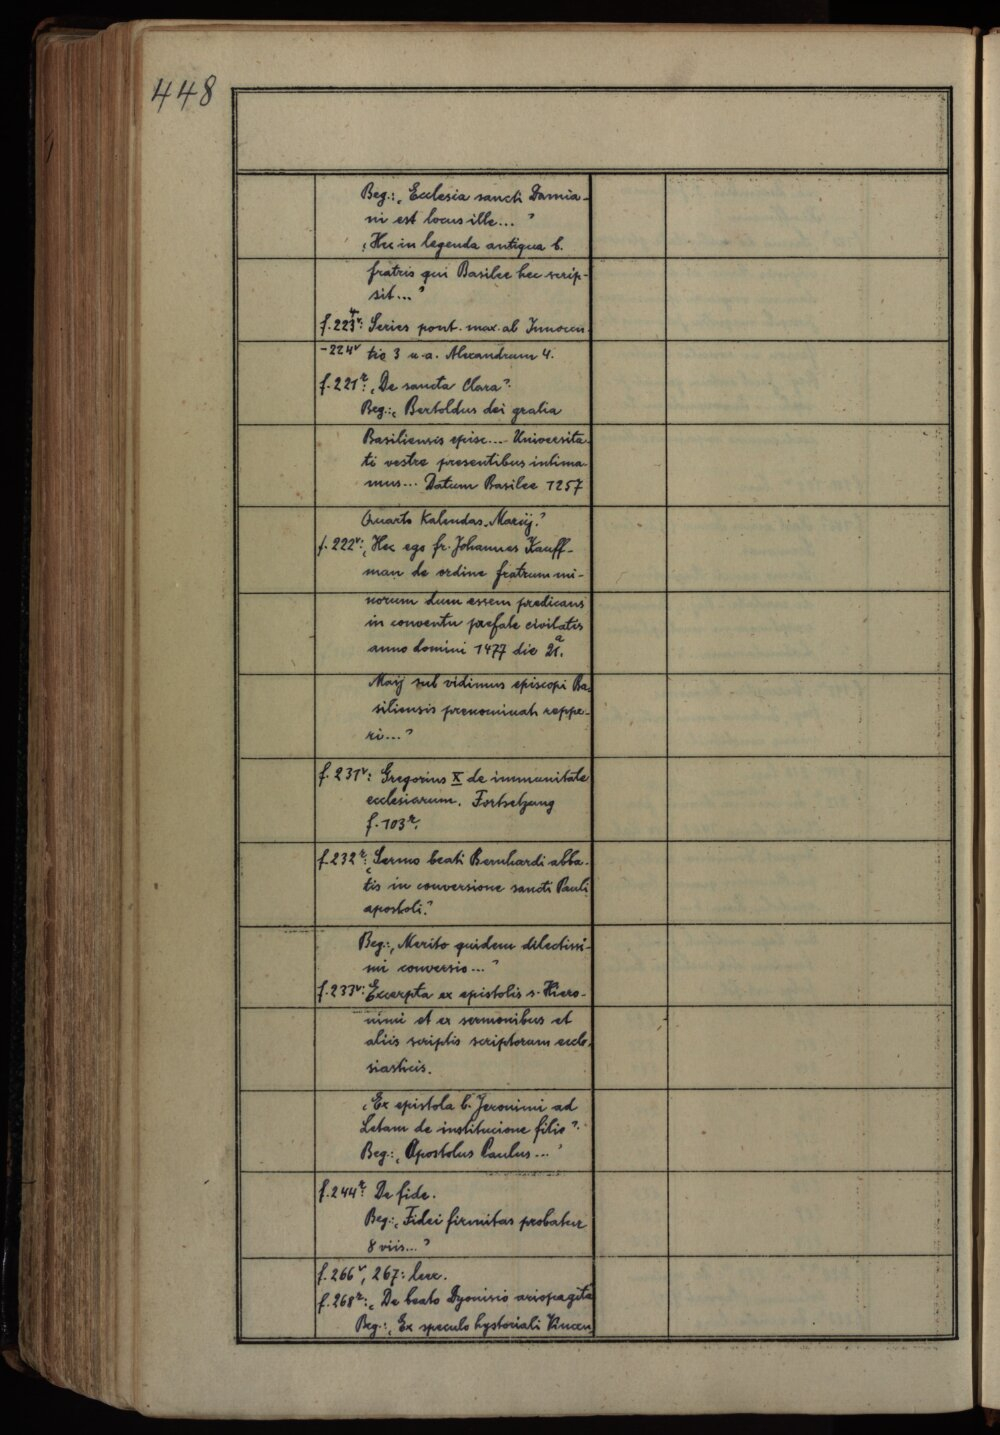 448
Beg.: „Ecclesia sancti Damia-
ni est locus ille..."
„Hec in legenda antiqua b.
fratris qui Basilee hec scrip-
sit..."
f. 223v: Series pont. max. ab Innocen-
-224v tio 3 u. a. Alexandrum 4.
f. 221r: „De sancta Clara".
Beg.: „Bertoldus dei gratia
Basiliensis episc.... Universita-
ti vestre presentibus intima-
mus... Datum Basilee 1257
Quarto Kalendas Marcij."
f. 222v: „Hec ego fr. Johannes Kauff-
man de ordine fratrum mi-
norum dum essem predicans
in conventu prefate civitatis
anno domini 1477 die 21a.
Maij sub vidimus episcopi Ba-
siliensis prenominati reppe-
ri..."
f. 231v: Gregorius X de immunitate
ecclesiarum. Fortsetzung
f. 103r.
f. 232r: „Sermo beati Bernhardi abba-
tis in conversione sancti Pauli
apostoli."
Beg.: „Merito quidem dilectissi-
mi conversio..."
f. 233v: Excerpta ex epistolis s. Hiero-
nimi et ex sermonibus et
aliis scriptis scriptorum eccle-
siasticis.
„Ex epistola b. Jeronimi ad
Letam de institucione filie".
Beg.: „Apostolus Paulus..."
f. 244r: De fide.
Beg.: „Fidei firmitas probatur
8 viis..."
f. 266v, 267: leer.
f. 268r: „De beato Dyonisio ariopagita"
Beg.: „Ex speculo hystoriali Vincen